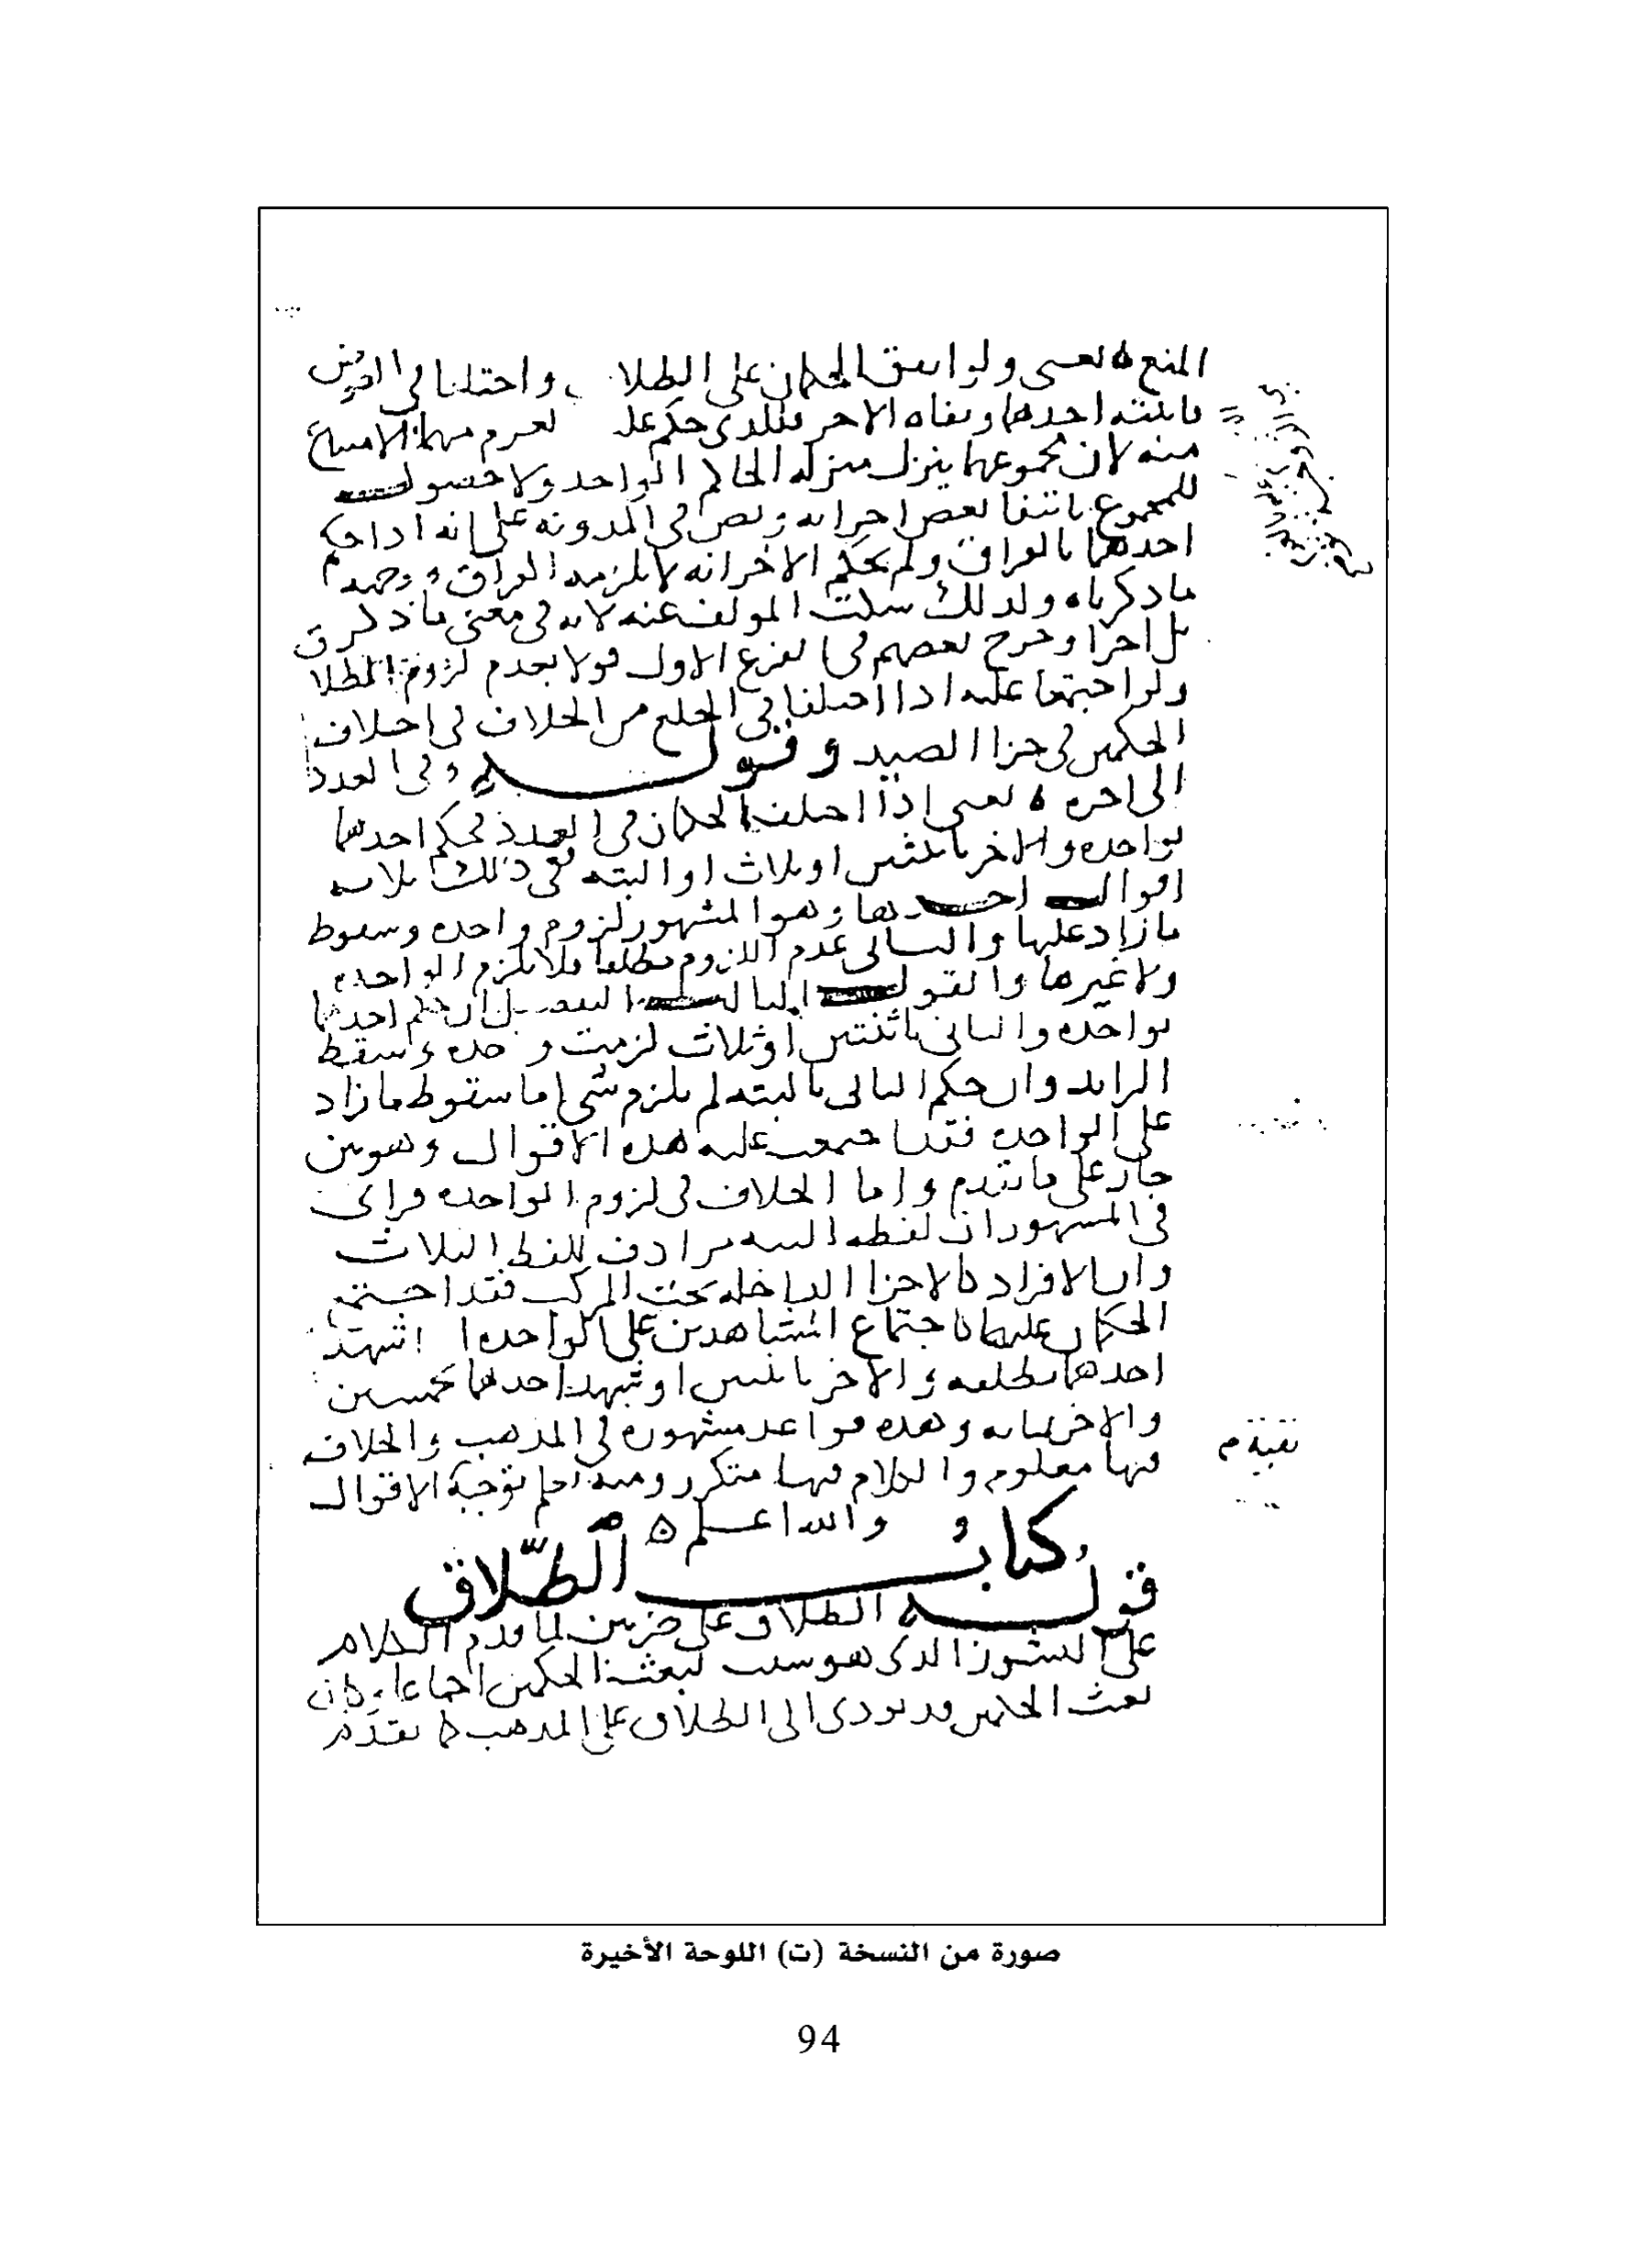 المنع ه يعني ولو اتفق الحكمان على الطلاق واختلفا في العوض
فاثبته احدهما ونفاه الاخر فللذي حكم عليه
منه لان مجموعهما ينزل منزلة الحاكم الواحد ولا حصول
للمجموع بانتفا بعض اجزايه ونص في المدونة على انه اذا حكم
احدهما بالفراق ولم يحكم الاخر انه لا يلزمه الفراق ووجهه
ما ذكرناه ولذلك سكت المولف عنه لانه في معنى ما ذكر
وخرج بعضهم في الفرع الاول قولا بعدم لزوم الطلاق
اذا اختلفا في الخلع من الخلاف في اختلاف
الحكمين في جزا الصيد وقوله وفي العدد
الى اخره ه يعني اذا اختلف الحكمان في العدد فحكم احدهما
بواحدة والاخر باثنتين او بثلاث او البتة ففي ذلك ثلاثة
اقوال احدها وهو المشهور لزوم واحدة وسقوط
ما زاد عليها والثاني عدم اللزوم مطلقا فلا يلزم الواحدة
ولا غيرها والقول الثالث التفصيل ان حكم احدهما
بواحدة والثاني باثنتين او ثلاث لزمت واحدة وسقط
الزايد وان حكم الثاني بالبتة لم يلزم شي اما سقوط ما زاد
على الواحدة فقد اجتمعت عليه هذه الاقوال وهو بين
جار على ما تقدم واما الخلاف في لزوم الواحدة فراى
في المشهور ان لفظة البتة مرادف للفظ الثلاث
وان الافراد كالاجزا الداخلة تحت المركب فقد اجتمع
الحكمان عليها كاجتماع الشاهدين على الواحدة اذا شهد
احدهما بطلقة والاخر باثنتين او شهد احدهما بخمسين
والاخر بماية وهذه قواعد مشهورة في المذهب والخلاف
فيها معلوم والكلام فيها متكرر ومنه تعلم توجيه الاقوال
والله اعلم ه
كتاب الطلاق
قوله الطلاق على ضربين لما قدم الكلام
على النشوز الذي هو سبب لبعث الحكمين اجماعا وكان
بعث الحكمين قد يودي الى الطلاق على المذهب كما تقدم
صورة من النسخة (ت) اللوحة الأخيرة
94